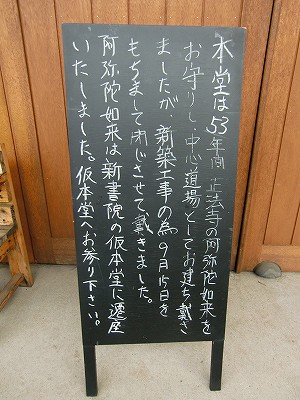 本堂は53年間 正法寺の阿弥陀如来を
お守りし、中心道場としてお建ち戴き
ましたが、新築工事の為9月15日を
もちまして閉じさせて戴きました。
阿弥陀如来は新書院の仮本堂に遷座
いたしました。仮本堂へお参り下さい。